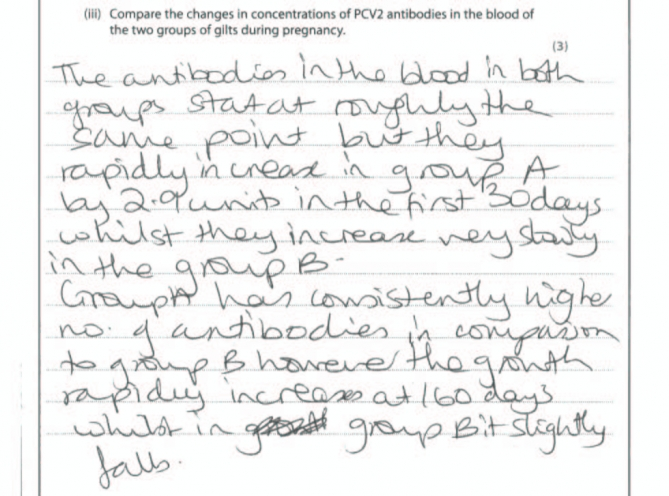 (iii) Compare the changes in concentrations of PCV2 antibodies in the blood of
the two groups of gilts during pregnancy.
(3)
The antibodies in the blood in both
groups stat at roughly the
same point but they
rapidly increase in group A
by 2.9 units in the first 30 days
whilst they increase very slowly
in the group B.
Group A has consistently highe
no. of antibodies in comparison
to group B however the growth
rapidly increases at 160 days
whilst in group B it slightly
falls.